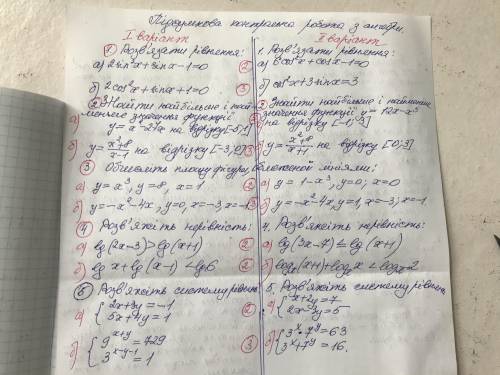 Підсумкова контрольна робота з алгебри.
I варіант
① Розв'язати рівняння:
а) 2sin²x+sinx-1=0
б) 2cos²x+sinx+1=0
② Знайти найбільше і най-
меньше значення функції
а) на відрізку[-5;1]
б) y=x²+8/x-1 на відрізку [-3;0]
③ Обчисліть площу фігури, обмеженої лініями:
а) y=x³, y=8, x=1
б) y=-x²-4x, y=0, x=-3, x=-1
④ Розв'яжіть нерівність:
а) lg(2x-3)>lg(x+1)
б) lgx+lg(x-1)<lg6
⑤ Розв'яжіть систему рівнянь
а) {2x+3y=-1
5x+4y=1
б) {9^(x+y)=729
3^(x-y-1)=1
II варіант
1. Розв'язати рівняння:
② а) cos²x+cosx-1=0
③ б) cos²x+3sinx=3
2. Знайти найбільше і найменше
значення функції y=12x-x³
на відрізку [-1;3]
③ б) y=x²+8/x+1 на відрізку [0;3]
② а) y=1-x³, y=0; x=0
③ б) y=-x²-4x, y=1, x=-3; x=-1
4. Розв'яжіть нерівність:
② а) lg(3x-7)≤lg(x+1)
② б)
5. Розв'яжіть систему рівнянь
② а) x+2y=7
2x-3y=5
③ б) {3^x·7^y=63
3^x+7^y=16.